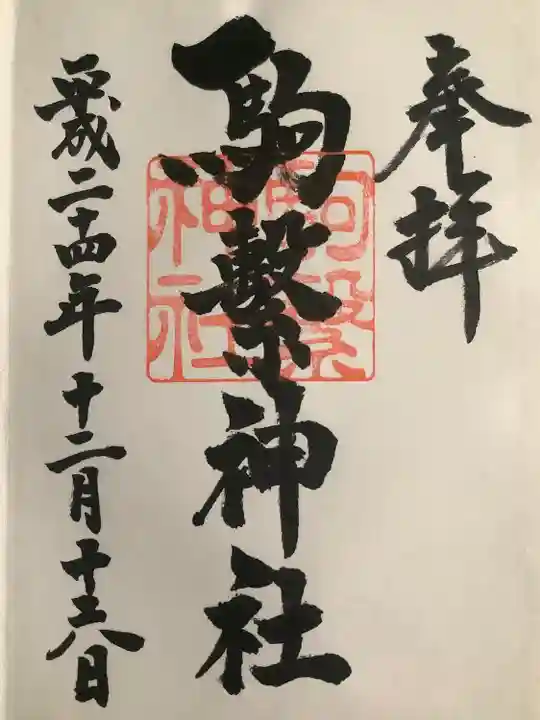 奉拝
駒繋神社
平成二十四年十二月十六日
駒繋
神社